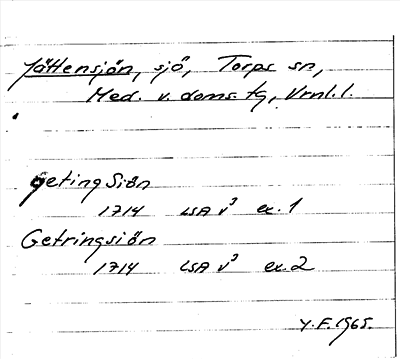 Jättensjön, sjö, Torps sn,
Med. v. doms. tg, Vrml. l.
geting Siön
1714 LSA V³ ex. 1
Getringsiön
1714 LSA V³ ex. 2
Y. F. 1965.